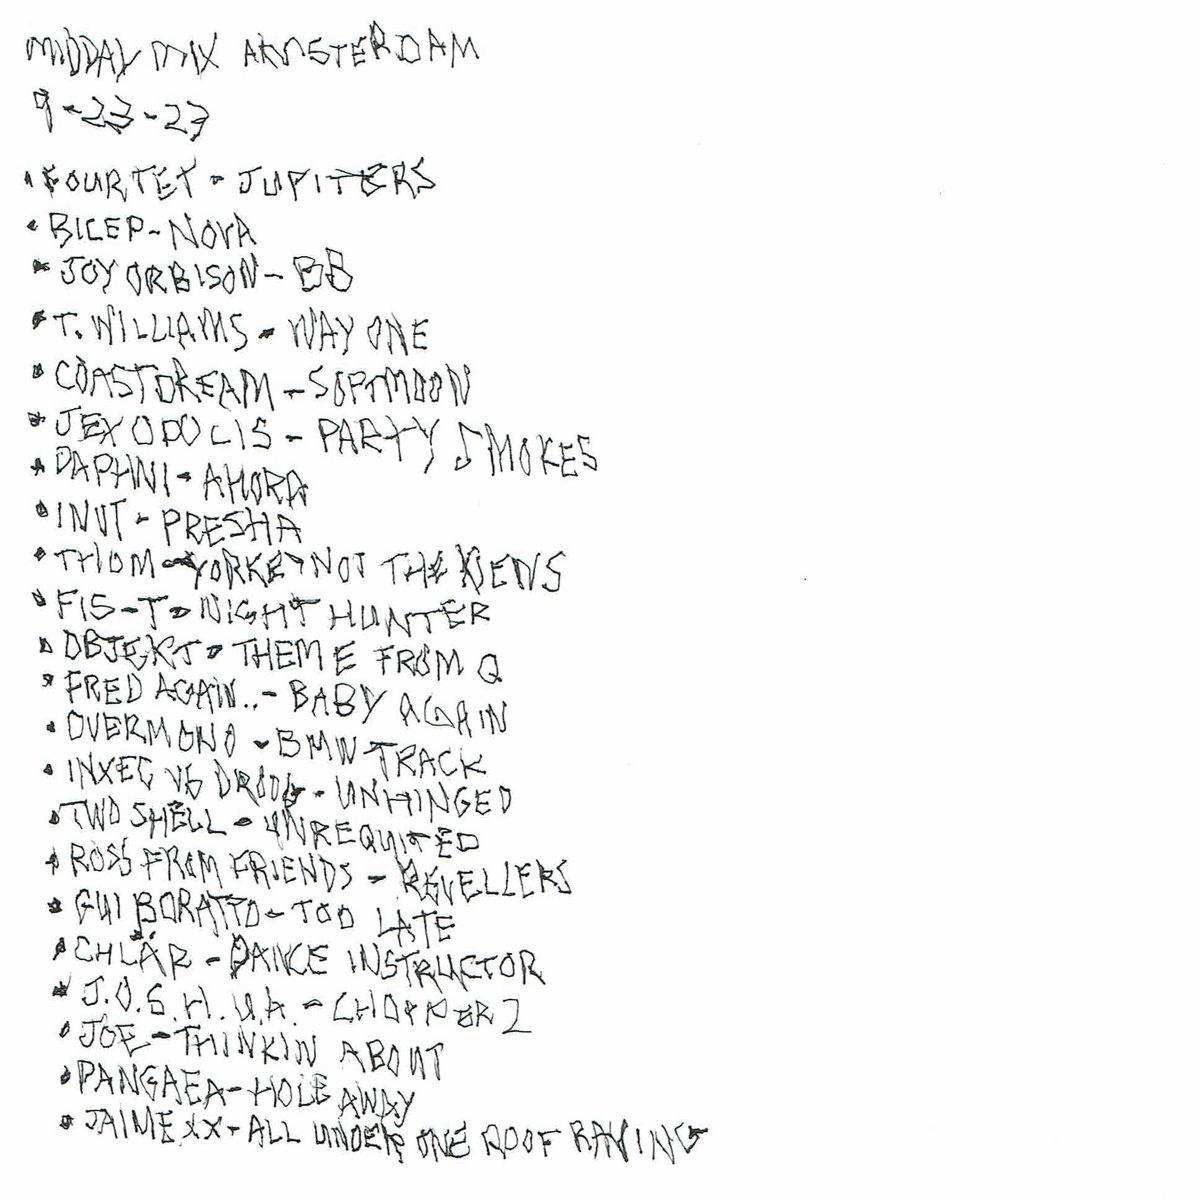 MIDDAY MIX AMSTERDAM
9-23-23
• FOUR TET - JUPITERS
• BICEP - NOVA
• JOY ORBISON - BB
• T. WILLIAMS - WAY ONE
• COASTDREAM - SOFTMOON
• JEX OPOLIS - PARTY SMOKES
• DAPHNI - AHORA
• INVT - PRESHA
• THOM - YORKE - NOT THE NEWS
• FIS-T - NIGHT HUNTER
• OBJEKT - THEME FROM Q
• FRED AGAIN.. - BABY AGAIN
• OVERMONO - BMW TRACK
• INXEC VS DROOG - UNHINGED
• TWO SHELL - UNREQUITED
• ROSS FROM FRIENDS - REVELLERS
• GUI BORATTO - TOO LATE
• CHLÄR - DANCE INSTRUCTOR
• J.O.S.H.U.A. - CHOPPER 2
• JOE - THINKIN ABOUT
• PANGAEA - HOLE AWAY
• JAIME XX - ALL UNDER ONE ROOF RAVING